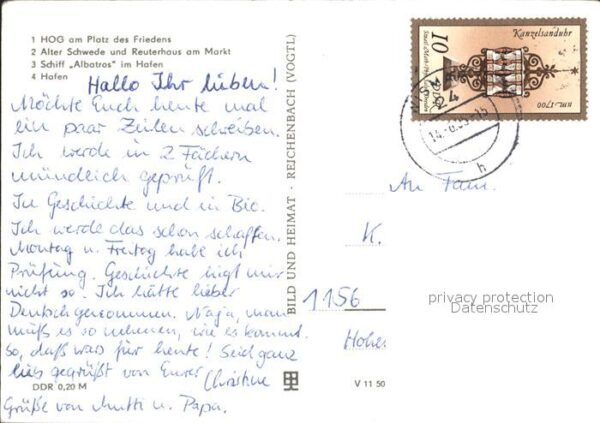 1 HOG am Platz des Friedens
2 Alter Schwede und Reuterhaus am Markt
3 Schiff „Albatros" im Hafen
4 Hafen
Hallo Ihr lieben!
Möchte Euch heute mal
ein paar Zeilen schreiben.
Ich werde in 2 Fächern
mündlich geprüft.
In Geschichte und in Bio.
Ich werde das schon schaffen.
Montag u. Freitag habe ich
Prüfung. Geschichte liegt mir
nicht so. Ich hätte lieber
Deutsch genommen. Naja, man
muß es so nehmen, wie es kommt.
so, daß wars für heute! Seid ganz
lieb gegrüßt von Eurer Christine
DDR 0,20 M
Grüße von Mutti u. Papa.
BILD UND HEIMAT · REICHENBACH (VOGTL)
V 11 50
Kanzelsanduhr
10
DDR
um 1700
h
An Fam.
K.
1156
Hohe
privacy protection
Datenschutz